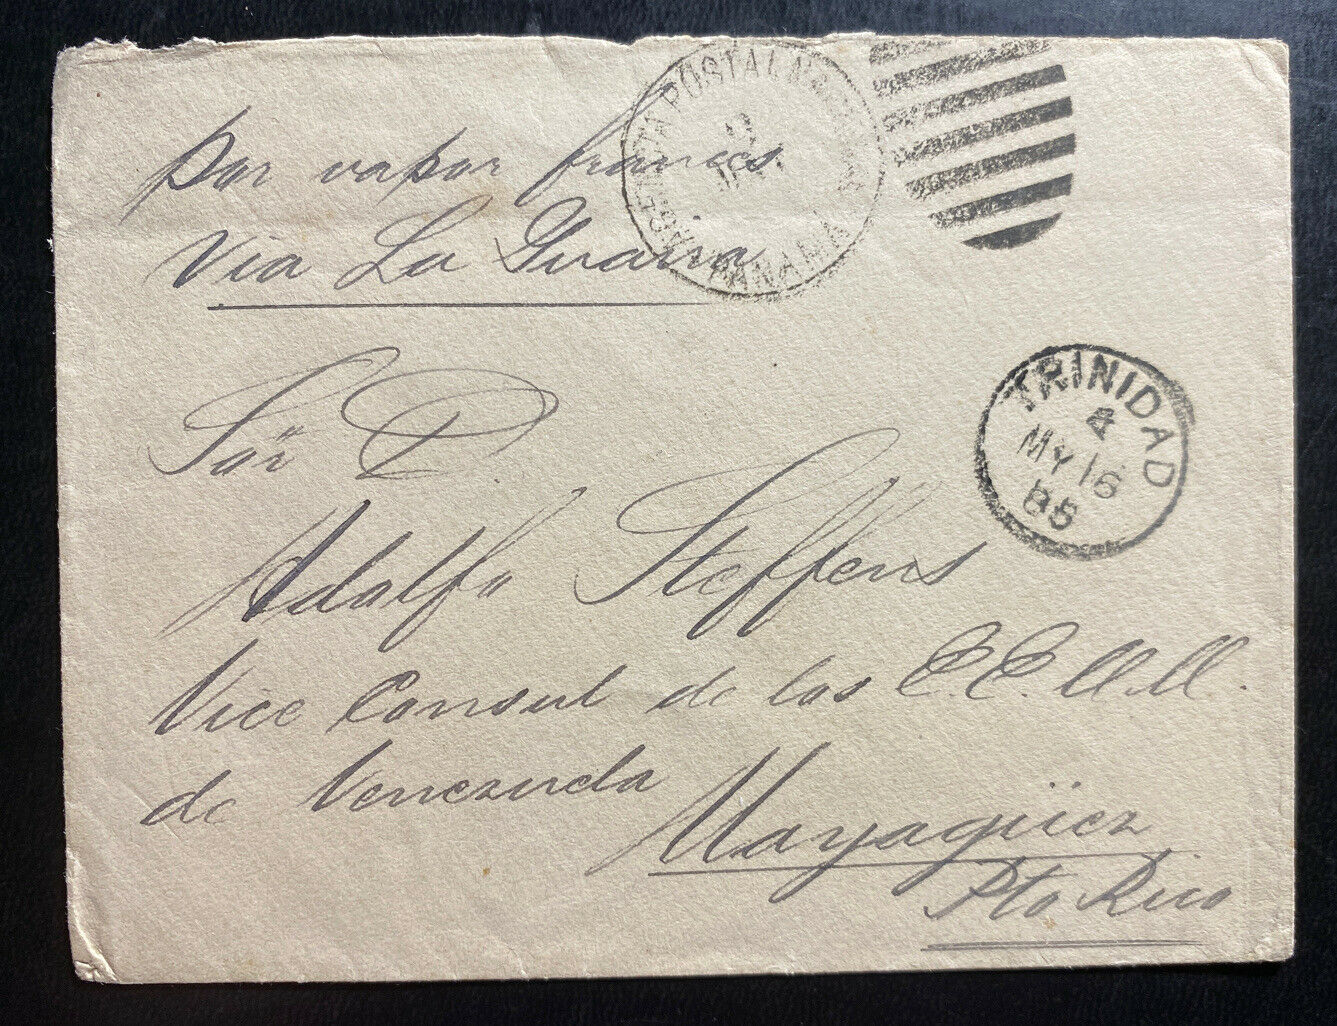 por vapor frances
via La Guaira
AGENCIA POSTAL NACIONAL
PANAMA
TRINIDAD
4
MY 16
85
Sõr D.
Adolfo Steffens
Vice Consul de los E.E.U.U.
de Venezuela
Mayagüez
Pto Rico